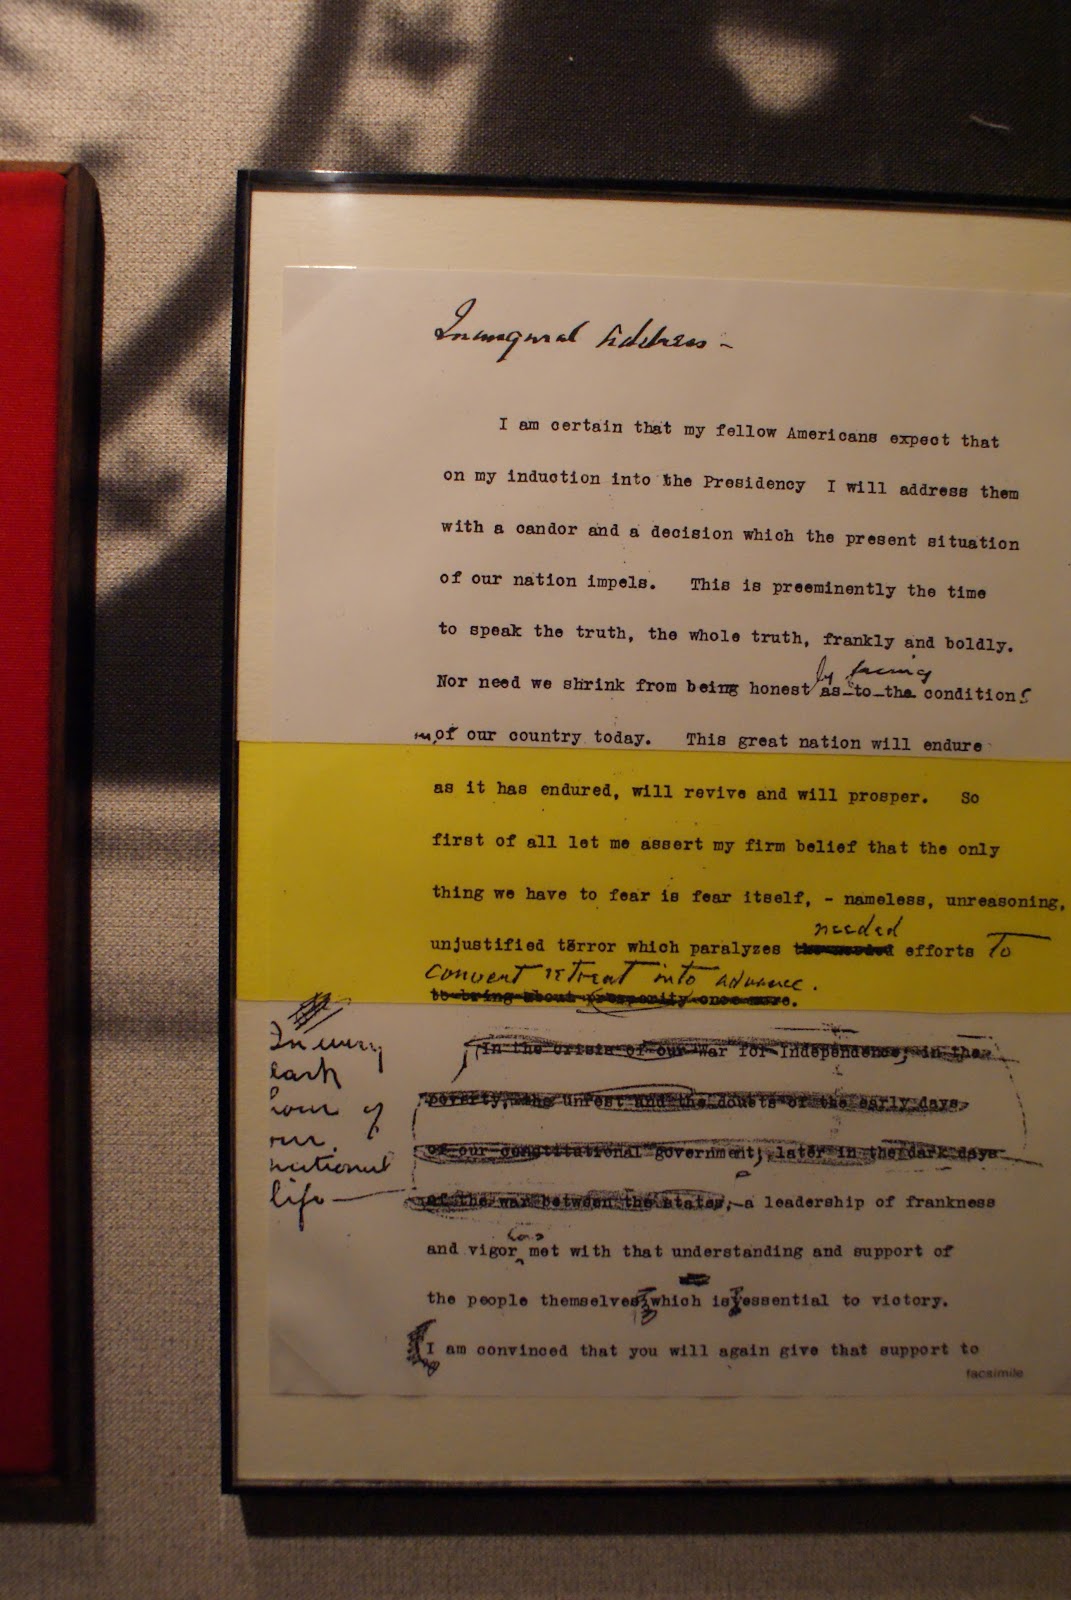 Inaugural Address -
I am certain that my fellow Americans expect that
on my induction into the Presidency I will address them
with a candor and a decision which the present situation
of our nation impels. This is preeminently the time
to speak the truth, the whole truth, frankly and boldly.
by facing
Nor need we shrink from being honest as to the conditions
in of our country today. This great nation will endure
as it has endured, will revive and will prosper. So
first of all let me assert my firm belief that the only
thing we have to fear is fear itself, - nameless, unreasoning,
needed
unjustified terror which paralyzes the needed efforts to
convert retreat into advance.
to bring about prosperity once more.
In every
dark
hour of
our
national
life
In the crisis of our war for Independence; in the
poverty, the unrest and the doubts of the early days
of our constitutional government; later in the dark days
of the war between the states, a leadership of frankness
has
and vigor met with that understanding and support of
the people themselves which is essential to victory.
I am convinced that you will again give that support to
facsimile